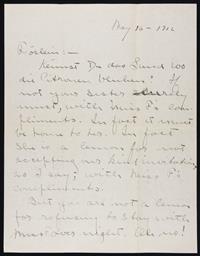 May 16 - 1912
Röslein: -
Kennst Du das Land wo
die Citronen blühen? If
not your sister surely
must, with Miss P's com-
pliments. In fact it must
be home to her. In fact
she is a lemon for not
accepting my kind invitation
as I say; with Miss P's
compliments.
But you are not a lemon
for refusing to stay with
me last night. Oh no!